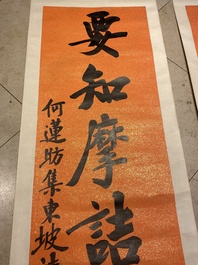 要知摩詰
何蓮昉集東坡